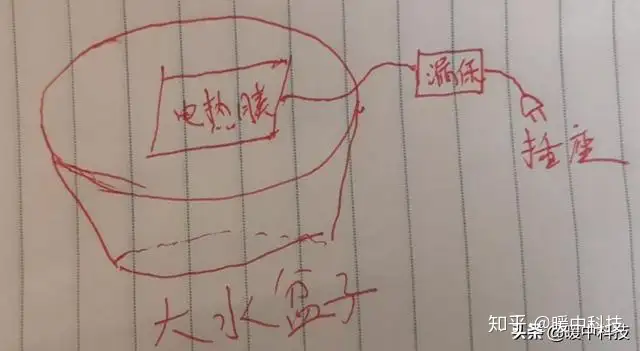 电热膜
漏保
插座
大水盆子
知乎 @暖中科技
头条 @暖中科技